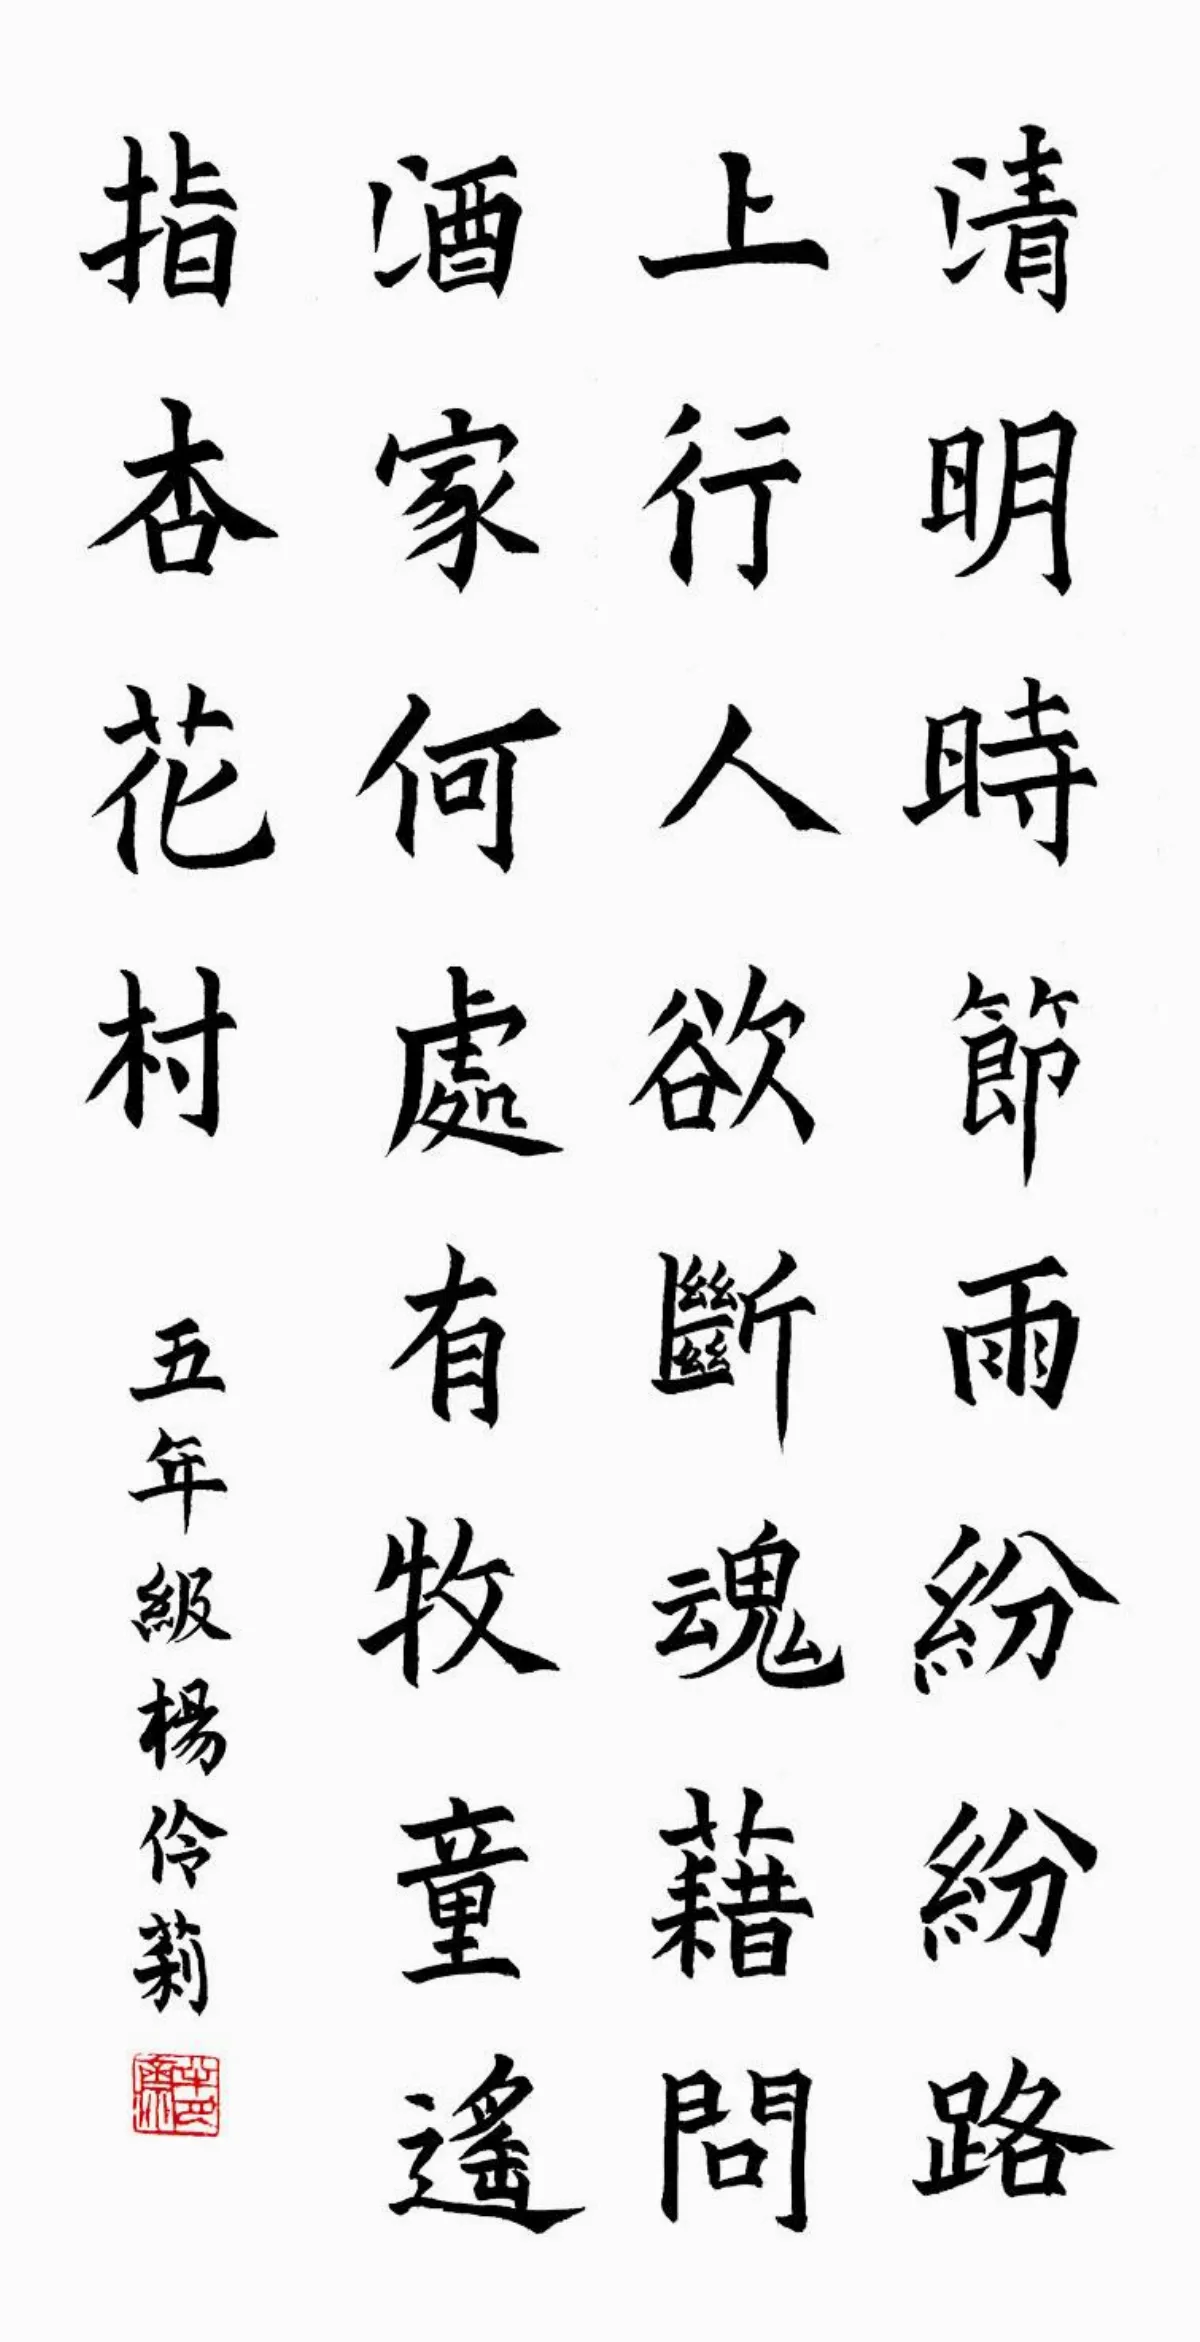 清明時節雨紛紛路
上行人欲斷魂藉問
酒家何處有牧童遙
指杏花村
五年級楊伶莉